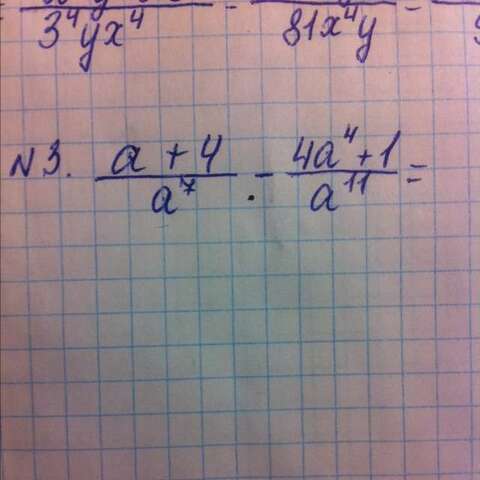 3⁴yx⁴ - 81x⁴y -
N3. a + 4 / a⁷ - 4a⁴+1 / a¹¹ =